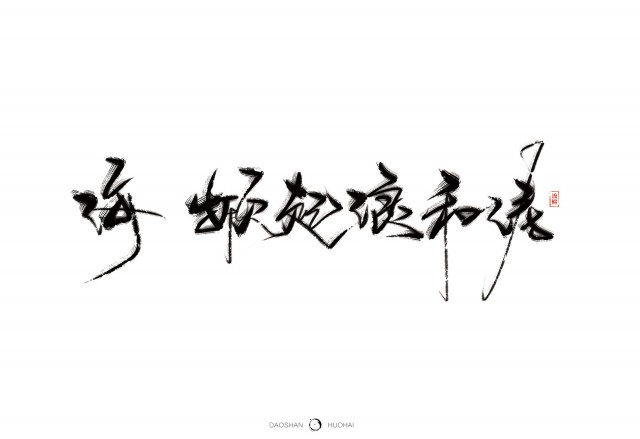 海 顿起浪和涛
DAOSHAN HUOHAI